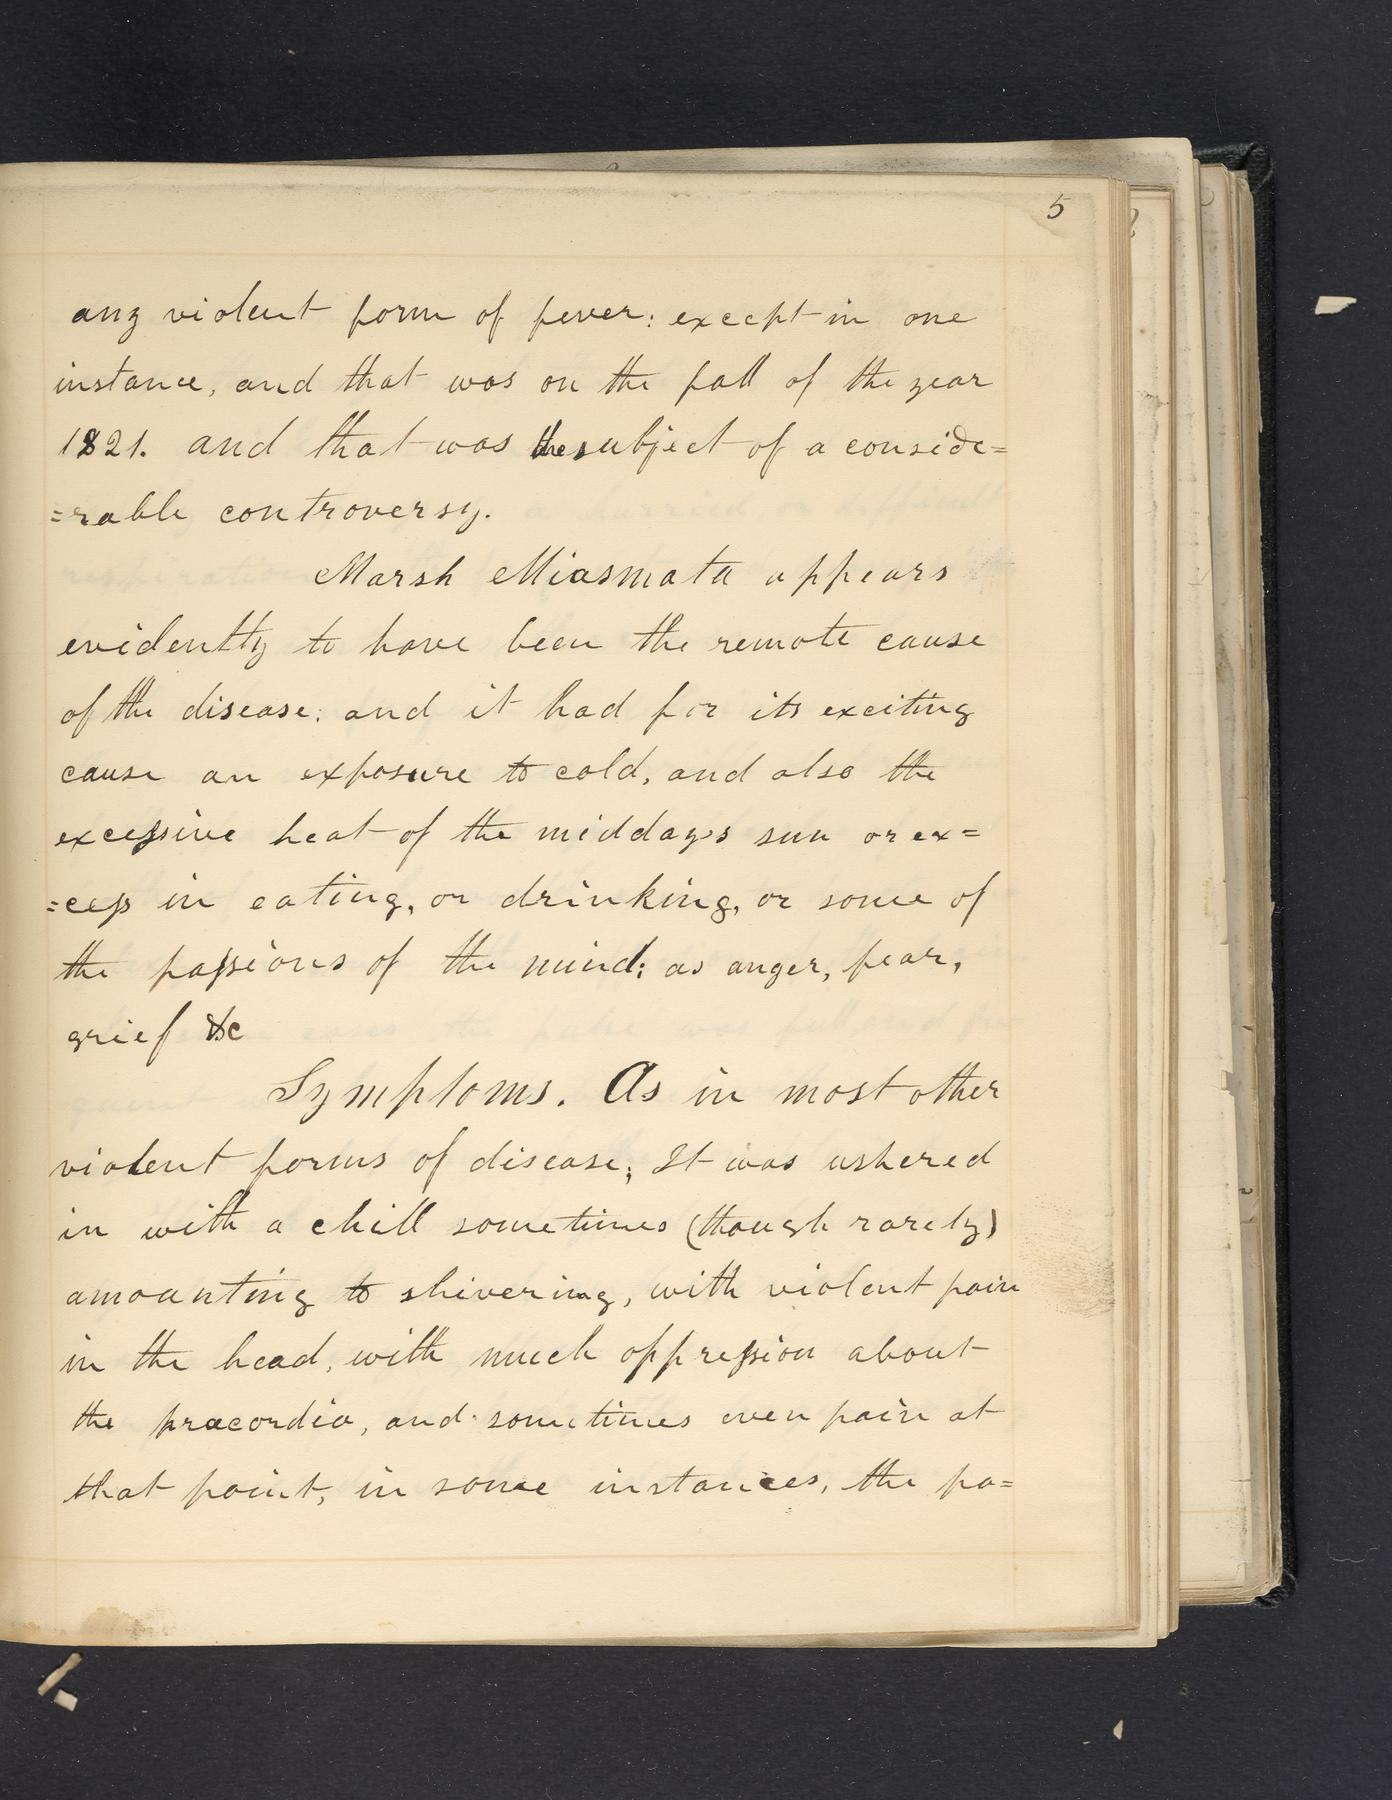 5
any violent form of fever: except in one
instance, and that was on the fall of the year
1821. and that was the subject of a conside=
=rable controversy.
Marsh Miasmata appears
evidently to have been the remote cause
of the disease; and it had for its exciting
cause an exposure to cold, and also the
excessive heat of the midday's sun or ex=
=cess in eating, or drinking, or some of
the passions of the mind; as anger, fear,
grief &c
Symptoms. As in most other
violent forms of disease; It was ushered
in with a chill sometimes (though rarely)
amounting to shivering, with violent pain
in the head, with much oppression about
the præcordia, and sometimes even pain at
that point, in some instances, the pa=